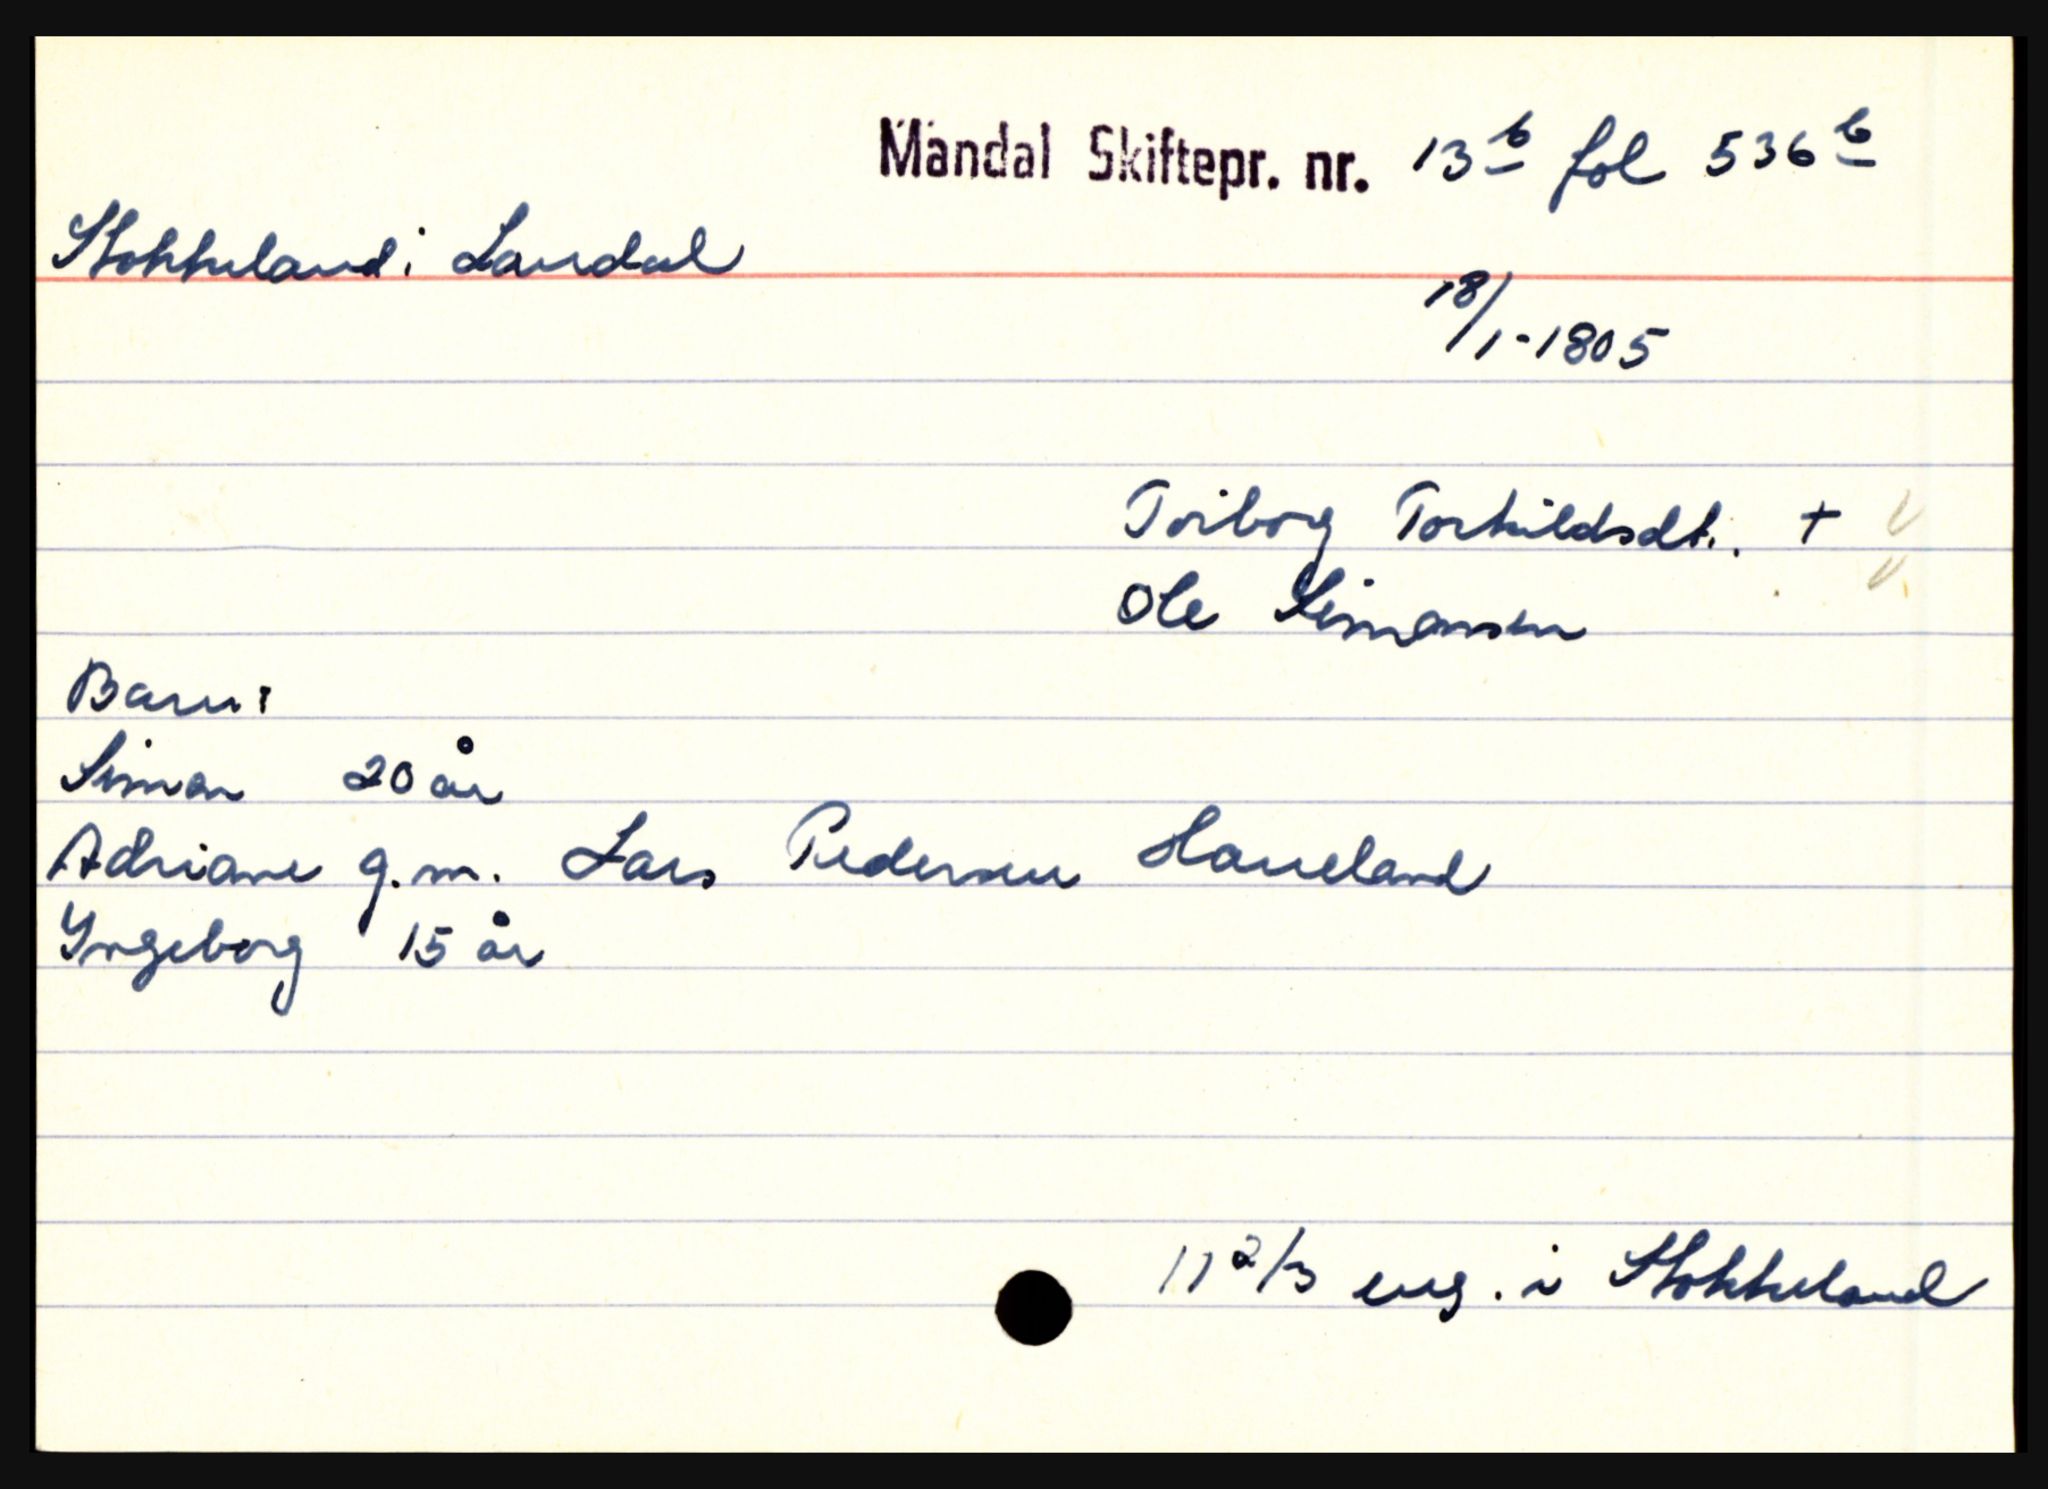 Mandal Skiftepr. nr. 13b fol 536b
Stokkeland i Laudal
18/1-1805
Torborg Torkildsdt. +
Ole Simonsen
Barn:
Simon 20 år
Adriane g.m. Lars Pedersen Haueland
Yngeborg 15 år
11 2/3 eng. i Stokkeland